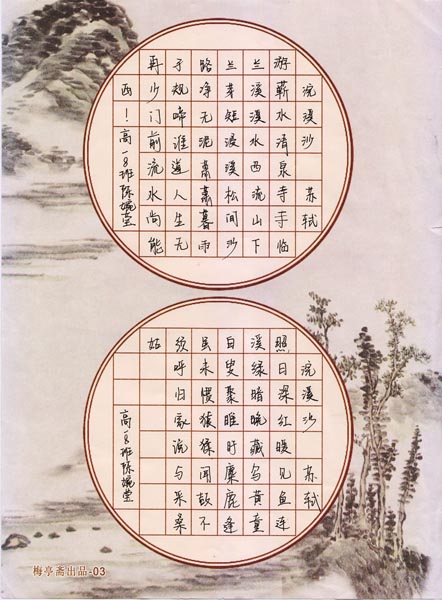 浣溪沙 苏轼
游蕲水清泉寺寺临
兰溪溪水西流山下
兰芽短浸溪松间沙
路净无泥萧萧暮雨
子规啼谁道人生无
再少门前流水尚能
西！
高一8班陈婉莹
浣溪沙 苏轼
照日深红暖见鱼连
溪绿暗晚藏乌黄童
白叟聚睢盱麋鹿逢
虽未惯猿猱闻鼓不
须呼归家说与采桑
姑
高一8班陈婉莹
梅亭斋出品-03